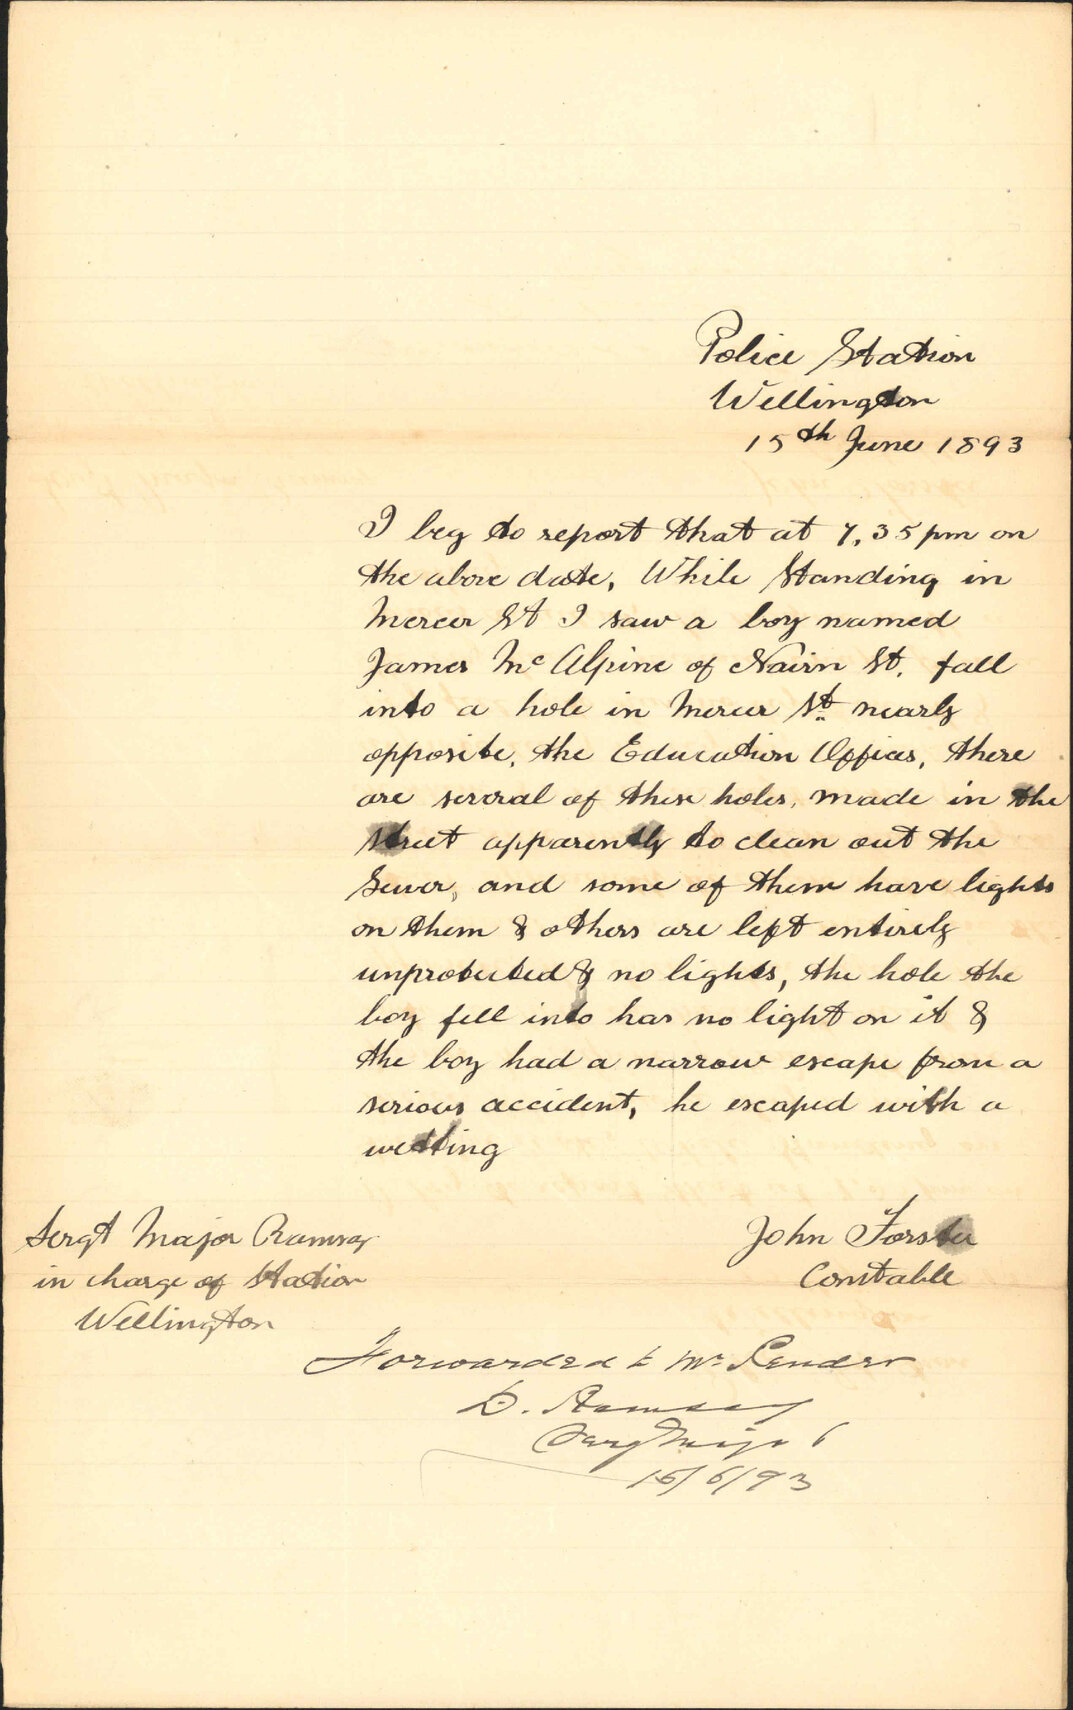 Police Station
Wellington
15th June 1893
I beg to report that at 7,35 pm on
the above date, While Standing in
Mercer St I saw a boy named
James Mc Alpine of Nairn St. fall
into a hole in Mercer St nearly
opposite, the Education Offices, there
are several of these holes, made in the
street apparently to clean out the
Sewer, and some of them have lights
on them & others are left entirely
unprotected & no lights, the hole the
boy fell into has no light on it &
the boy had a narrow escape from a
serious accident, he escaped with a
wetting
John Forster
Constable
Sergt Major Ramsay
in charge of Station
Wellington
Forwarded to Mr
D. Ramsay
Serg Major
/6/93